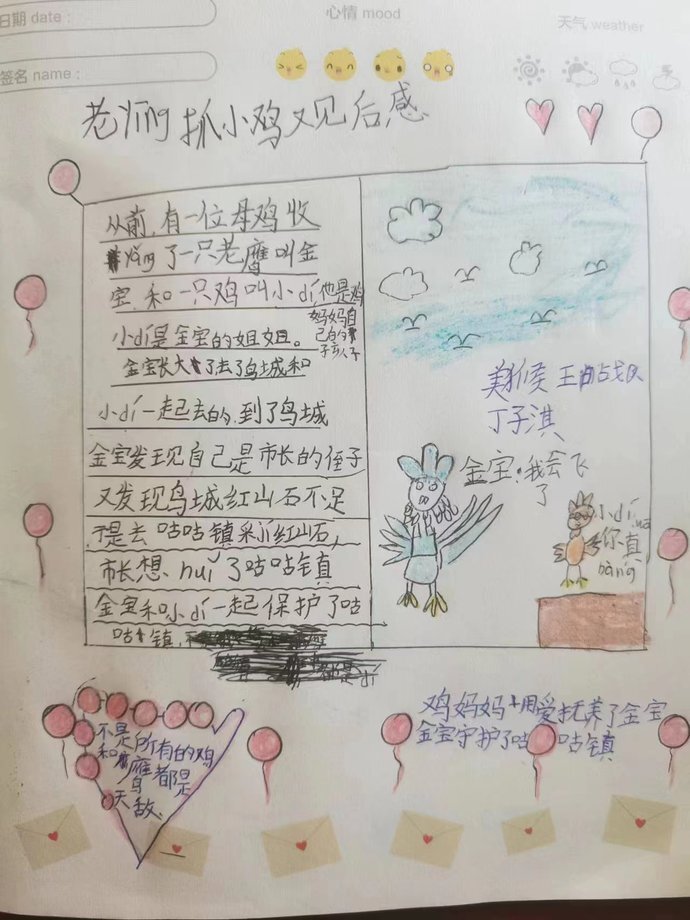 日期 date：
心情 mood
天气 weather
签名 name：
老yīng抓小鸡观后感
从前,有一位母鸡收
yǎng了一只老鹰叫金
宝,和一只鸡叫小dí,他是鸡
妈妈自
己的
孩子
小dí是金宝的姐姐。
金宝长大了去了鸟城和
小dí一起去的,到了鸟城
金宝发现自己是市长的侄子
又发现鸟城红山石不足
于是去咕咕镇采jí红山石,
市长想huǐ了咕咕镇
金宝和小dí一起保护了咕
咕镇,
美猴王战队
丁子淇
金宝:我会飞
了
小dí:wa
你真
bàng
不是所有的鸡
和鹰都是
天敌
鸡妈妈用爱抚养了金宝
金宝守护了咕咕镇